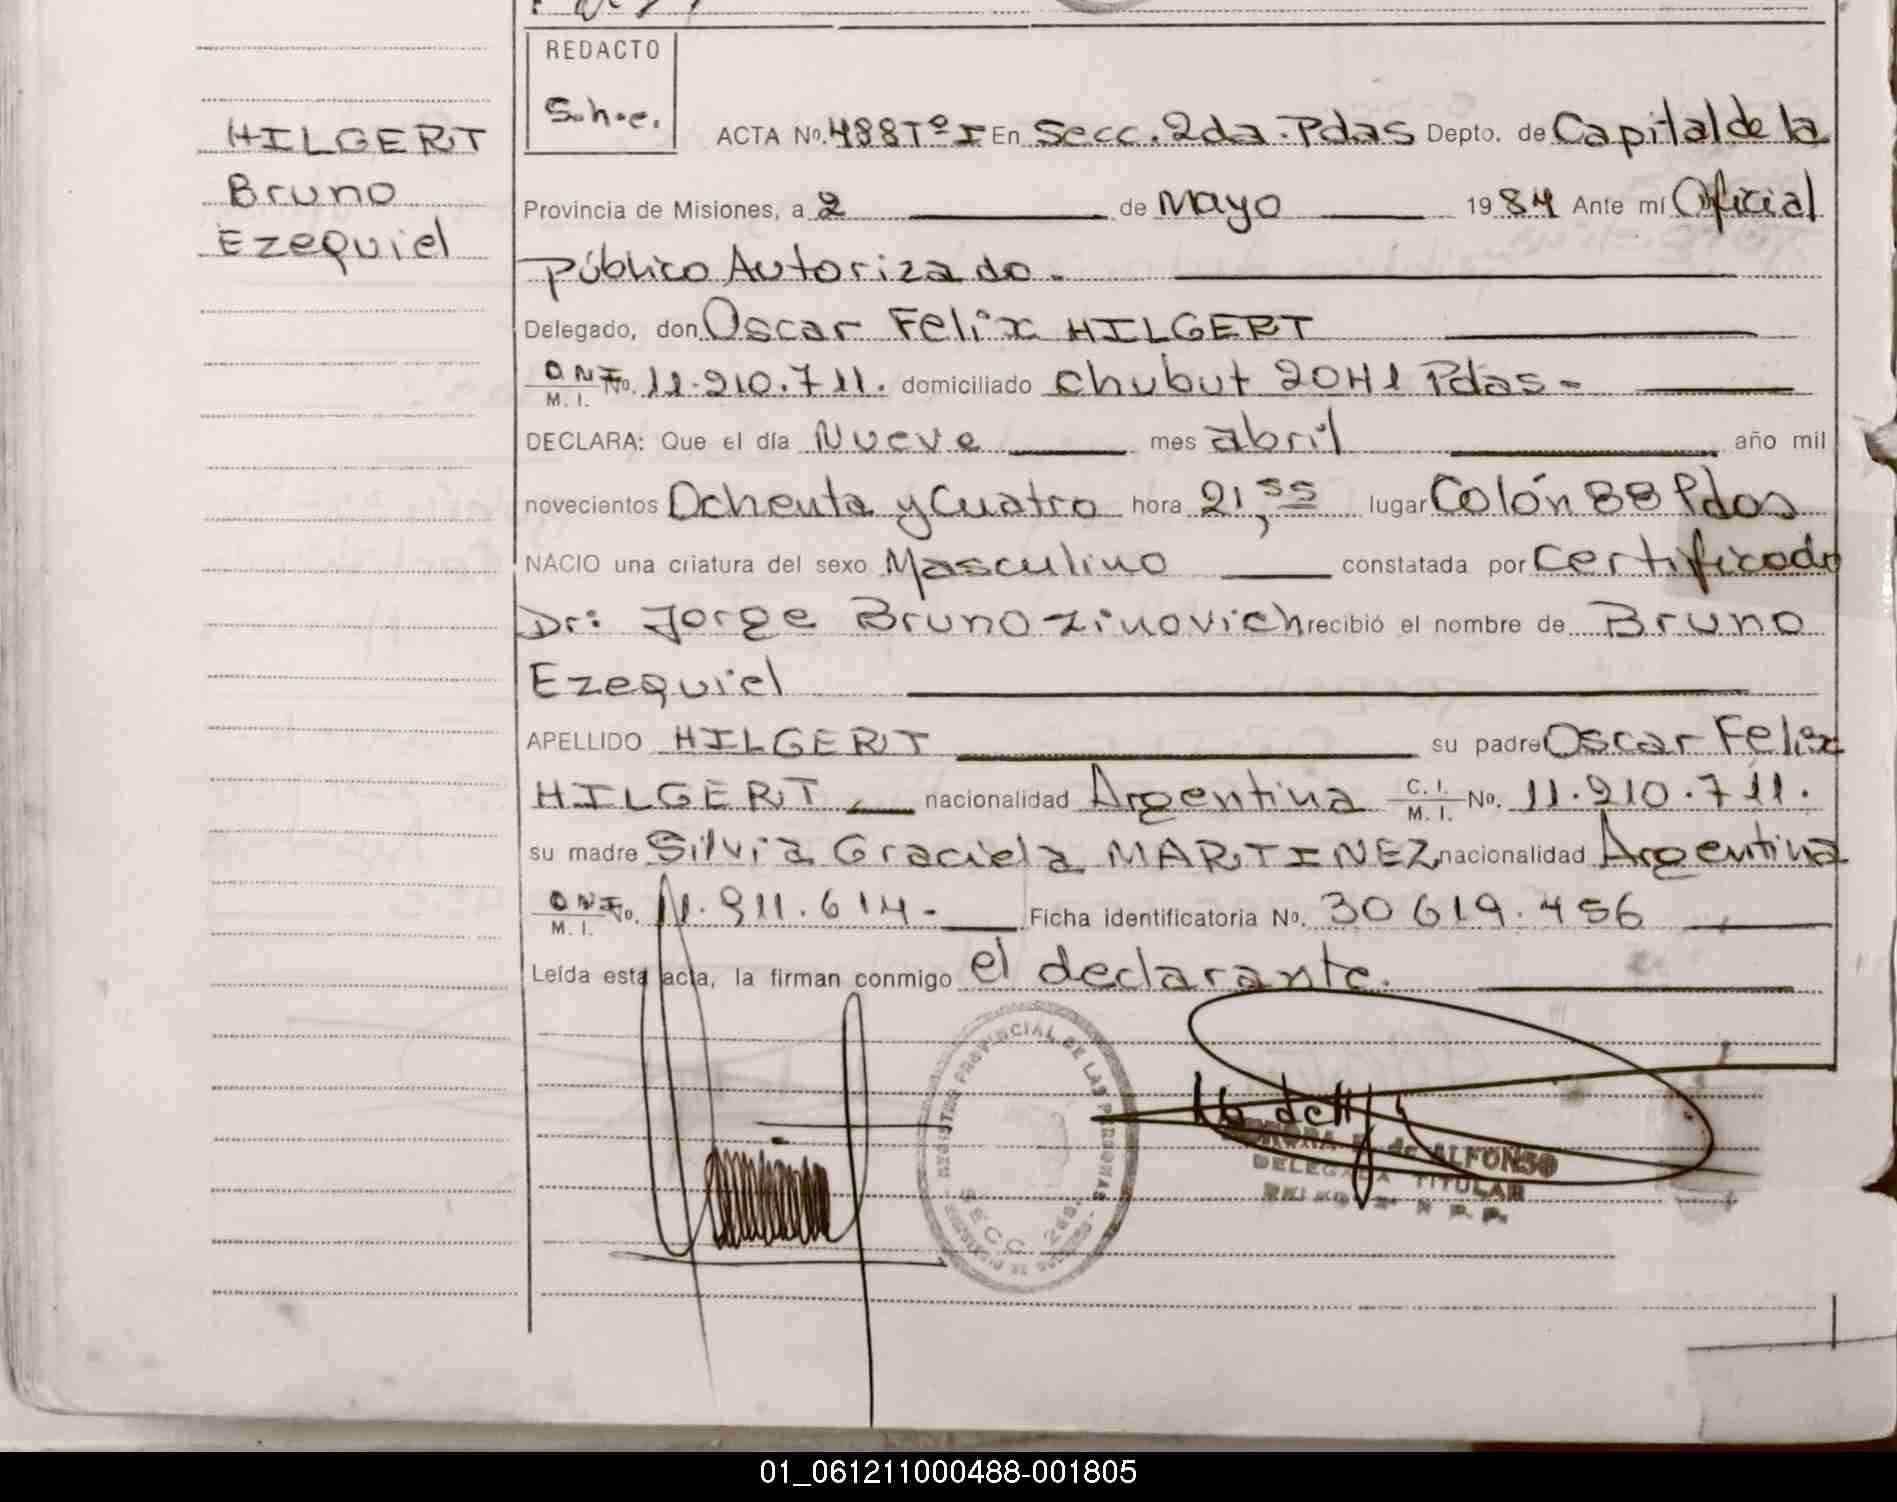 REDACTO
S.h.e.
HILGERT
Bruno
Ezequiel
ACTA No. 488 Tº I En Secc. 2da. Pdas Depto. de Capital de la
Provincia de Misiones, a 2 de Mayo 1984 Ante mí Oficial
Público Autorizado.
Delegado, don Oscar Felix HILGERT
D.N.I. M. I. No. 11.210.711. domiciliado Chubut 2041 Pdas.
DECLARA: Que el día Nueve mes abril año mil
novecientos Ochenta y Cuatro hora 21,55 lugar Colón 88 Pdas
NACIO una criatura del sexo Masculino constatada por Certificado
Dr: Jorge Bruno Zinovich recibió el nombre de Bruno
Ezequiel
APELLIDO HILGERT su padre Oscar Felix
HILGERT nacionalidad Argentina C. I. M. I. No. 11.210.711.
su madre Silvia Graciela MARTINEZ nacionalidad Argentina
D.N.I. M. I. No. 11.911.614. Ficha identificatoria No. 30619.456
Leída esta acta, la firman conmigo el declarante.
REGISTRO PROVINCIAL DE LAS PERSONAS
SECC. 2da.
de ALFONSO
DELEGADA TITULAR
01_061211000488-001805